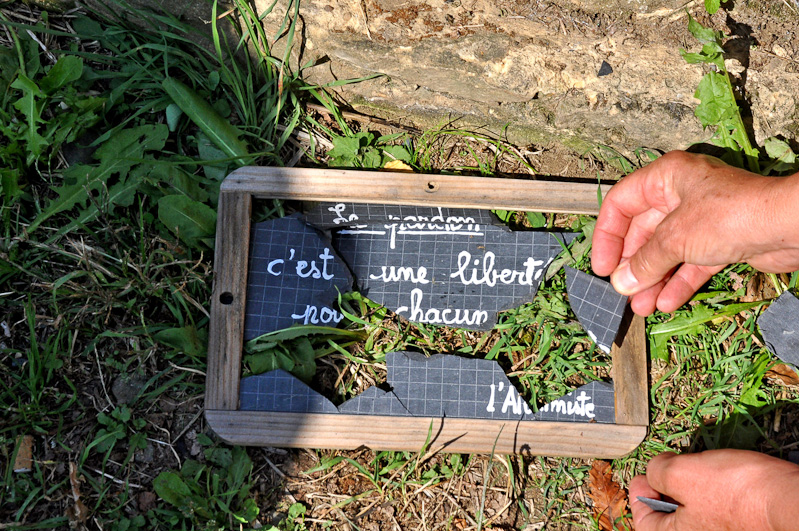 Le pardon
c'est une liberté
pour chacun
l'Alchimiste